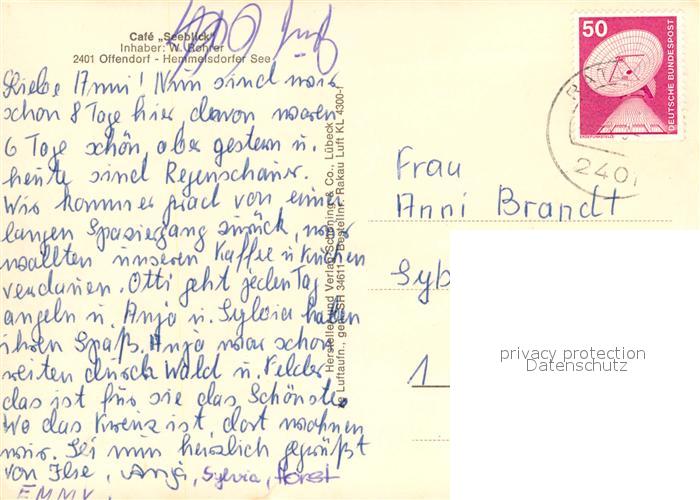 Café „Seeblick"
Inhaber: W. Rohrer
2401 Offendorf - Hemmelsdorfer See
Liebe Anni! Nun sind wir
schon 8 Tage hier, davon waren
6 Tage schön, aber gestern u.
heute sind Regenschauer.
Wir kommen grad von einem
langen Spaziergang zurück, wir
wollten unseren Kaffee u. Kuchen
verdauen. Otti geht jeden Tag
angeln u. Anja u. Sylvia haben
ihren Spaß. Anja war schon
reiten durch Wald u. Felder
das ist für sie das Schönste.
Wo das Kreuz ist, dort wohnen
wir. Sei nun herzlich gegrüßt
von Ilse, Anja, Sylvia, Horst
EMMY
Herstellung und Verlag Schöning & Co., Lübeck
Luftaufn., gen. SH 34611 Bestellnr. Rakau Luft KL 4300-1
50
DEUTSCHE BUNDESPOST
ERDEFUNKSTELLE
2401
Frau
Anni Brandt
Syb
1
privacy protection
Datenschutz